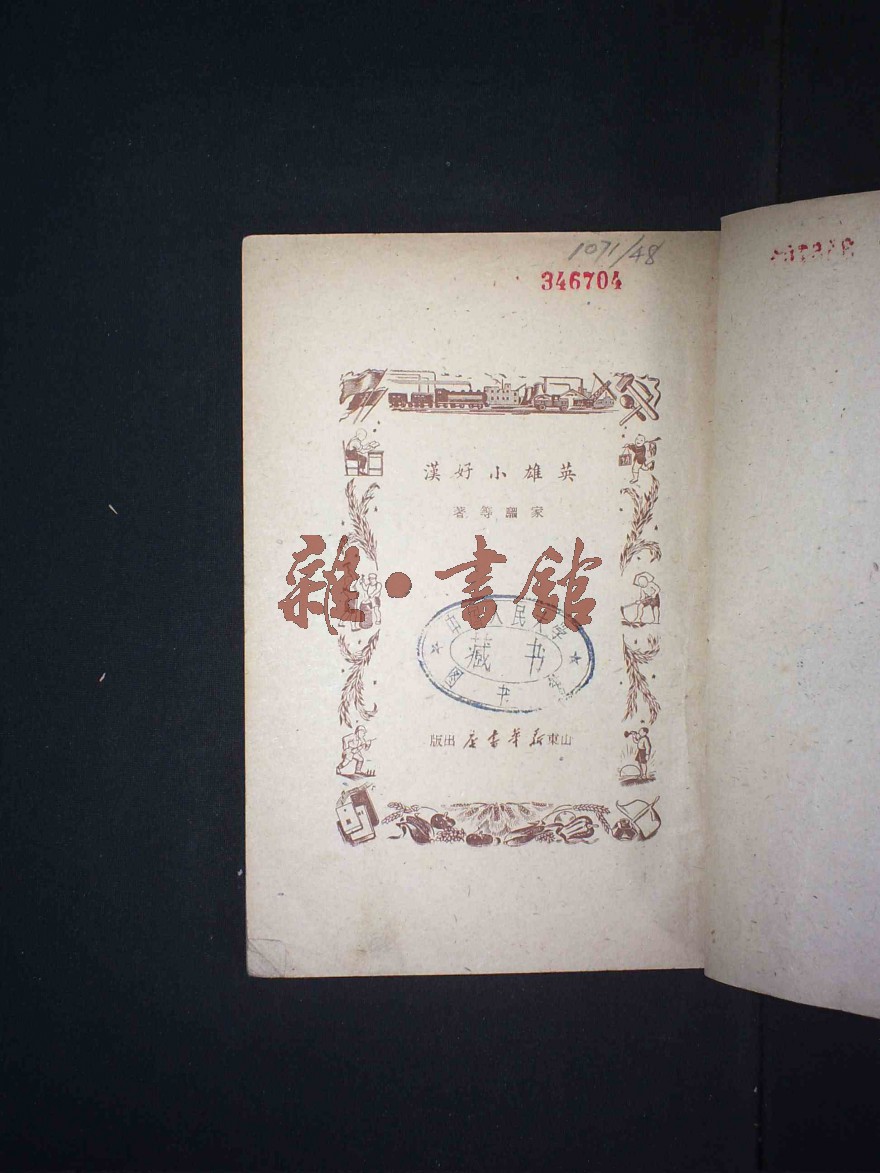 1071/48
346704
英雄小好漢
家 等著
雜·書館
中 人民大学
藏书
图书
山東新華書店出版